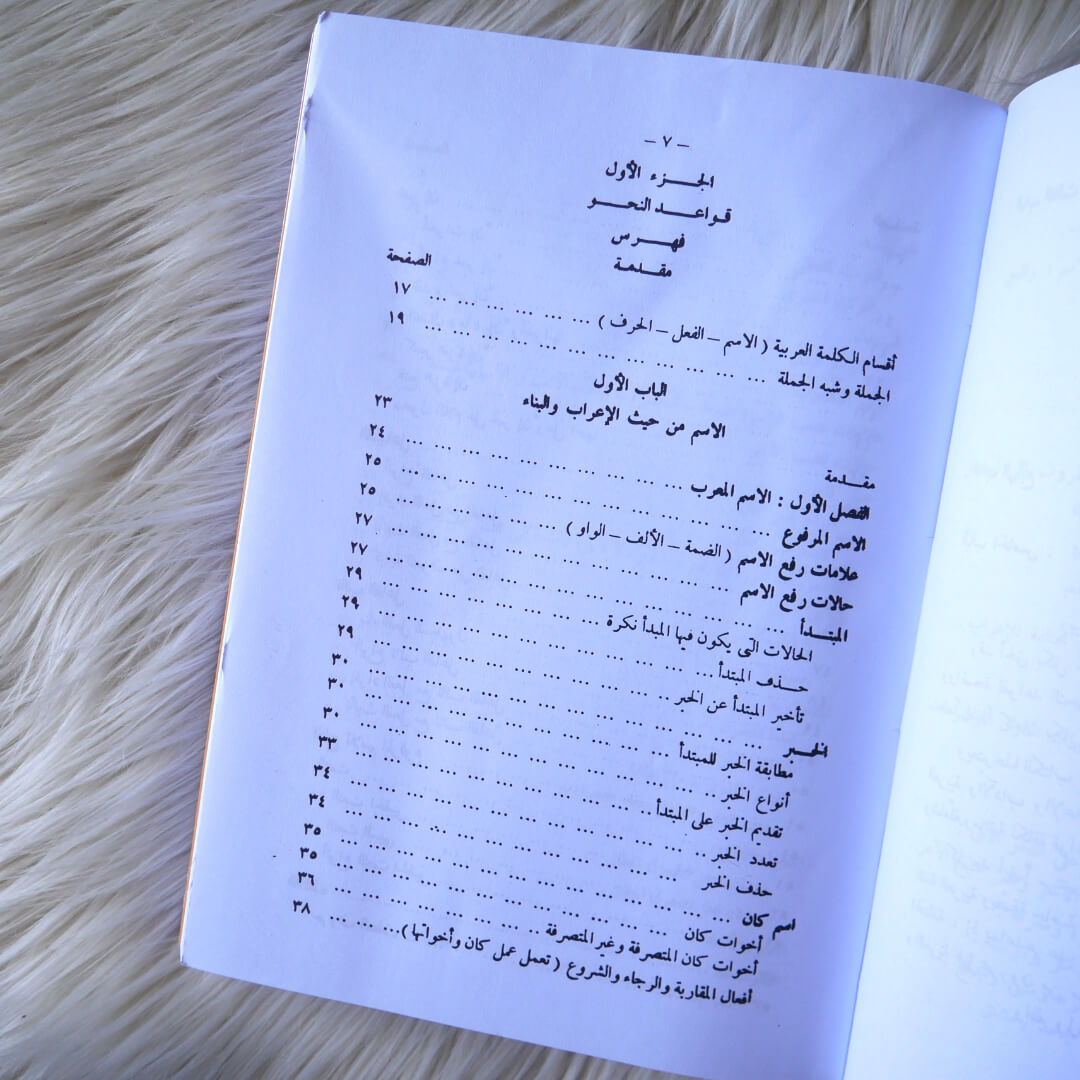 – ٧ –
الجزء الأول
قواعد النحو
فهرس
مقدمة
الصفحة
أقسام الكلمة العربية ( الاسم – الفعل – الحرف ) ... ... ... ... ... ... ١٧
الجملة وشبه الجملة ... ... ... ... ... ... ... ... ... ... ... ... ١٩
الباب الأول
الاسم من حيث الإعراب والبناء
مقدمة ٢٣
الفصل الأول : الاسم المعرب ... ... ... ... ... ... ... ... ... ... ٢٤
الاسم المرفوع ... ... ... ... ... ... ... ... ... ... ... ... ... ٢٥
علامات رفع الاسم ( الضمة – الألف – الواو ) ... ... ... ... ... ... ٢٥
حالات رفع الاسم ... ... ... ... ... ... ... ... ... ... ... ... ٢٧
المبتدأ ... ... ... ... ... ... ... ... ... ... ... ... ... ... ٢٧
الحالات التى يكون فيها المبتدأ نكرة ... ... ... ... ... ... ... ... ٢٩
حذف المبتدأ ... ... ... ... ... ... ... ... ... ... ... ... ٢٩
تأخير المبتدأ عن الخبر .. ... ... ... ... ... ... ... ... ... ... ٢٩
الخبر ... ... ... ... ... ... ... ... ... ... ... ... ... ... ٣٠
مطابقة الخبر للمبتدأ ... ... ... ... ... ... ... ... ... ... ... ٣٠
أنواع الخبر .. ... ... ... ... ... ... ... ... ... ... ... ... ٣٠
تقديم الخبر على المبتدأ .. ... ... ... ... ... ... ... ... ... ... ٣٣
تعدد الخبر .. ... ... ... ... ... ... ... ... ... ... ... ... ٣٤
حذف الخبر ... ... ... ... ... ... ... ... ... ... ... ... ٣٤
اسم كان ... ... ... ... ... ... ... ... ... ... ... ... ... ٣٥
أخوات كان ... ... ... ... ... ... ... ... ... ... ... ... ٣٥
أخوات كان المتصرفة وغير المتصرفة .. ... ... ... ... ... ... ... ٣٦
أفعال المقاربة والرجاء والشروع ( تعمل عمل كان وأخواتها ) ... ... ... ... ٣٨